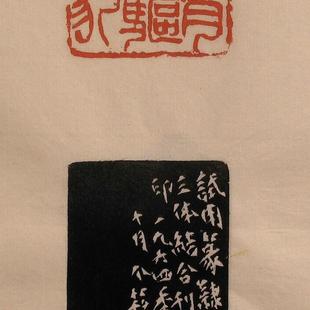 驅
試用篆隸
三体結合刊
印一九六四年
十月个簃